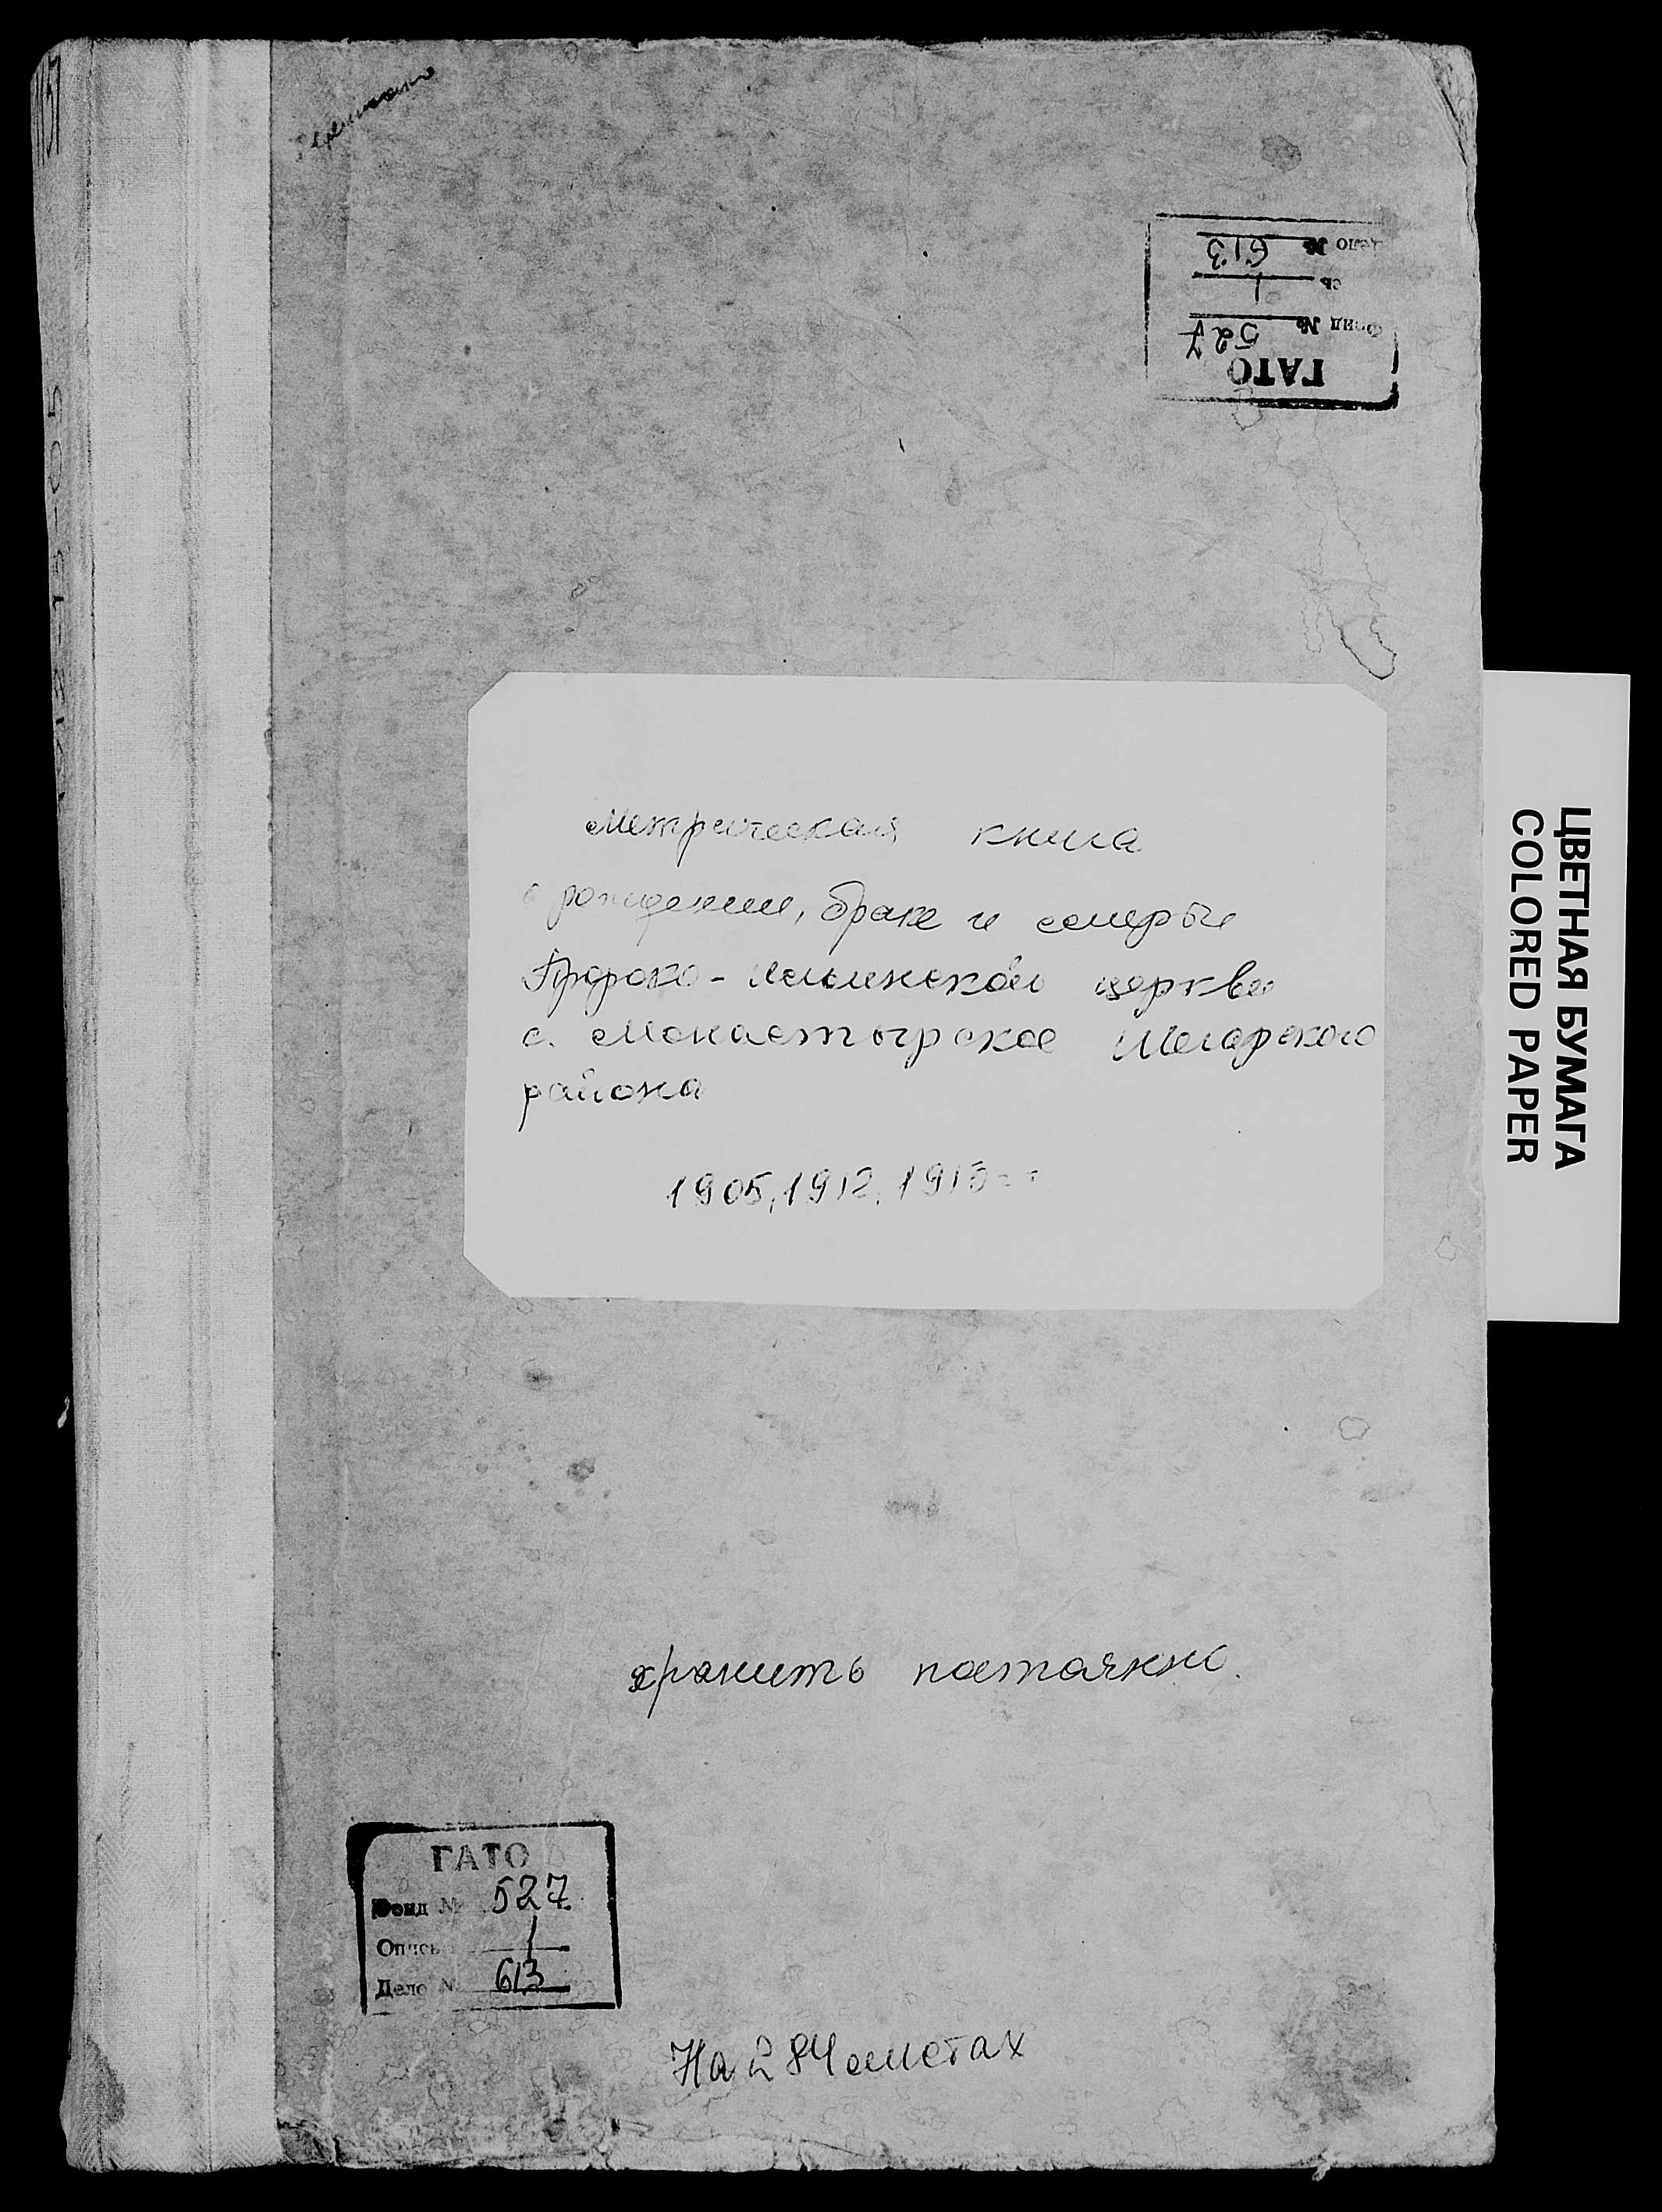 ГАТО
Фонд № 527
сь 1
Дело № 613
Метрическая книга
о рождении, браке и смерти
Пророко-Ильинской церкви
с. Монастырское Шегарского
района
1905, 1912, 1913 г г
хранить постоянно.
ГАТО
Фонд № 527
Опись 1
Дело № 613
На 284 листах
ЦВЕТНАЯ БУМАГА
COLORED PAPER